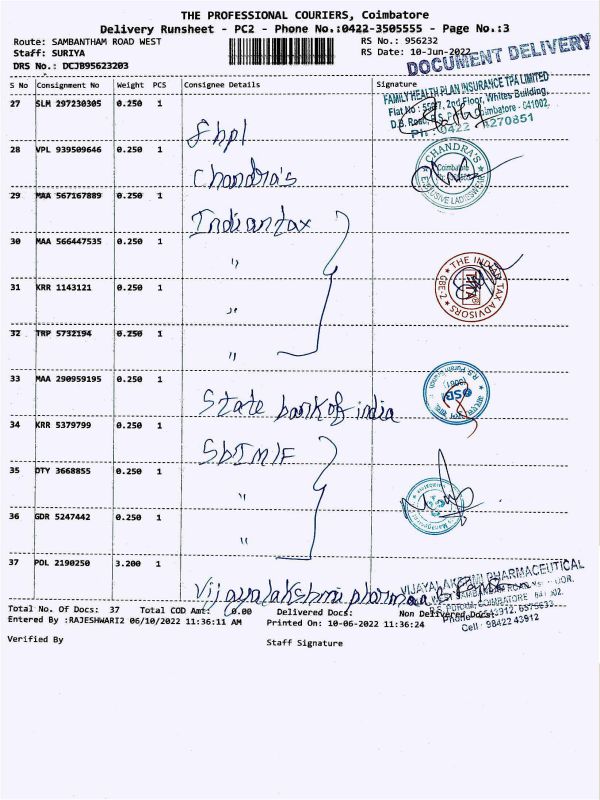 THE PROFESSIONAL COURIERS, Coimbatore
Delivery Runsheet - PC2 - Phone No.:0422-3505555 - Page No.:3
Route: SAMBANTHAM ROAD WEST
RS No.: 956232
Staff: SURIYA
RS Date: 10-Jun-2022
DRS No.: DCJB95623203
DOCUMENT DELIVERY
S No Consignment No Weight PCS Consignee Details Signature
27 SLM 297230305 0.250 1 fhpl
FAMILY HEALTH PLAN INSURANCE TPA LIMITED
2nd Floor, Whites Building,
Coimbatore - 641002.
28 VPL 939509646 0.250 1 Chandra's
CHANDRA'S
Coimbatore
EXCLUSIVE LADIESWEAR
29 MAA 567167889 0.250 1 Indiantax
30 MAA 566447535 0.250 1 "
31 KRR 1143121 0.250 1 "
THE INDIAN TAX ADVISORS
CBE-2
32 TRP 5732194 0.250 1 "
33 MAA 290959195 0.250 1 State bank of india
SBI
34 KRR 5379799 0.250 1 SbIMF
35 DTY 3668855 0.250 1 "
36 GDR 5247442 0.250 1 "
37 POL 2190250 3.200 1 Vijayalakshmi pharmaa
VIJAYALAKSHMI PHARMACEUTICAL
Cell: 98422 43912
Total No. Of Docs: 37 Total COD Amt: 0.00 Delivered Docs: Non Delivered Docs:
Entered By :RAJESHWARI2 06/10/2022 11:36:11 AM Printed On: 10-06-2022 11:36:24
Verified By
Staff Signature